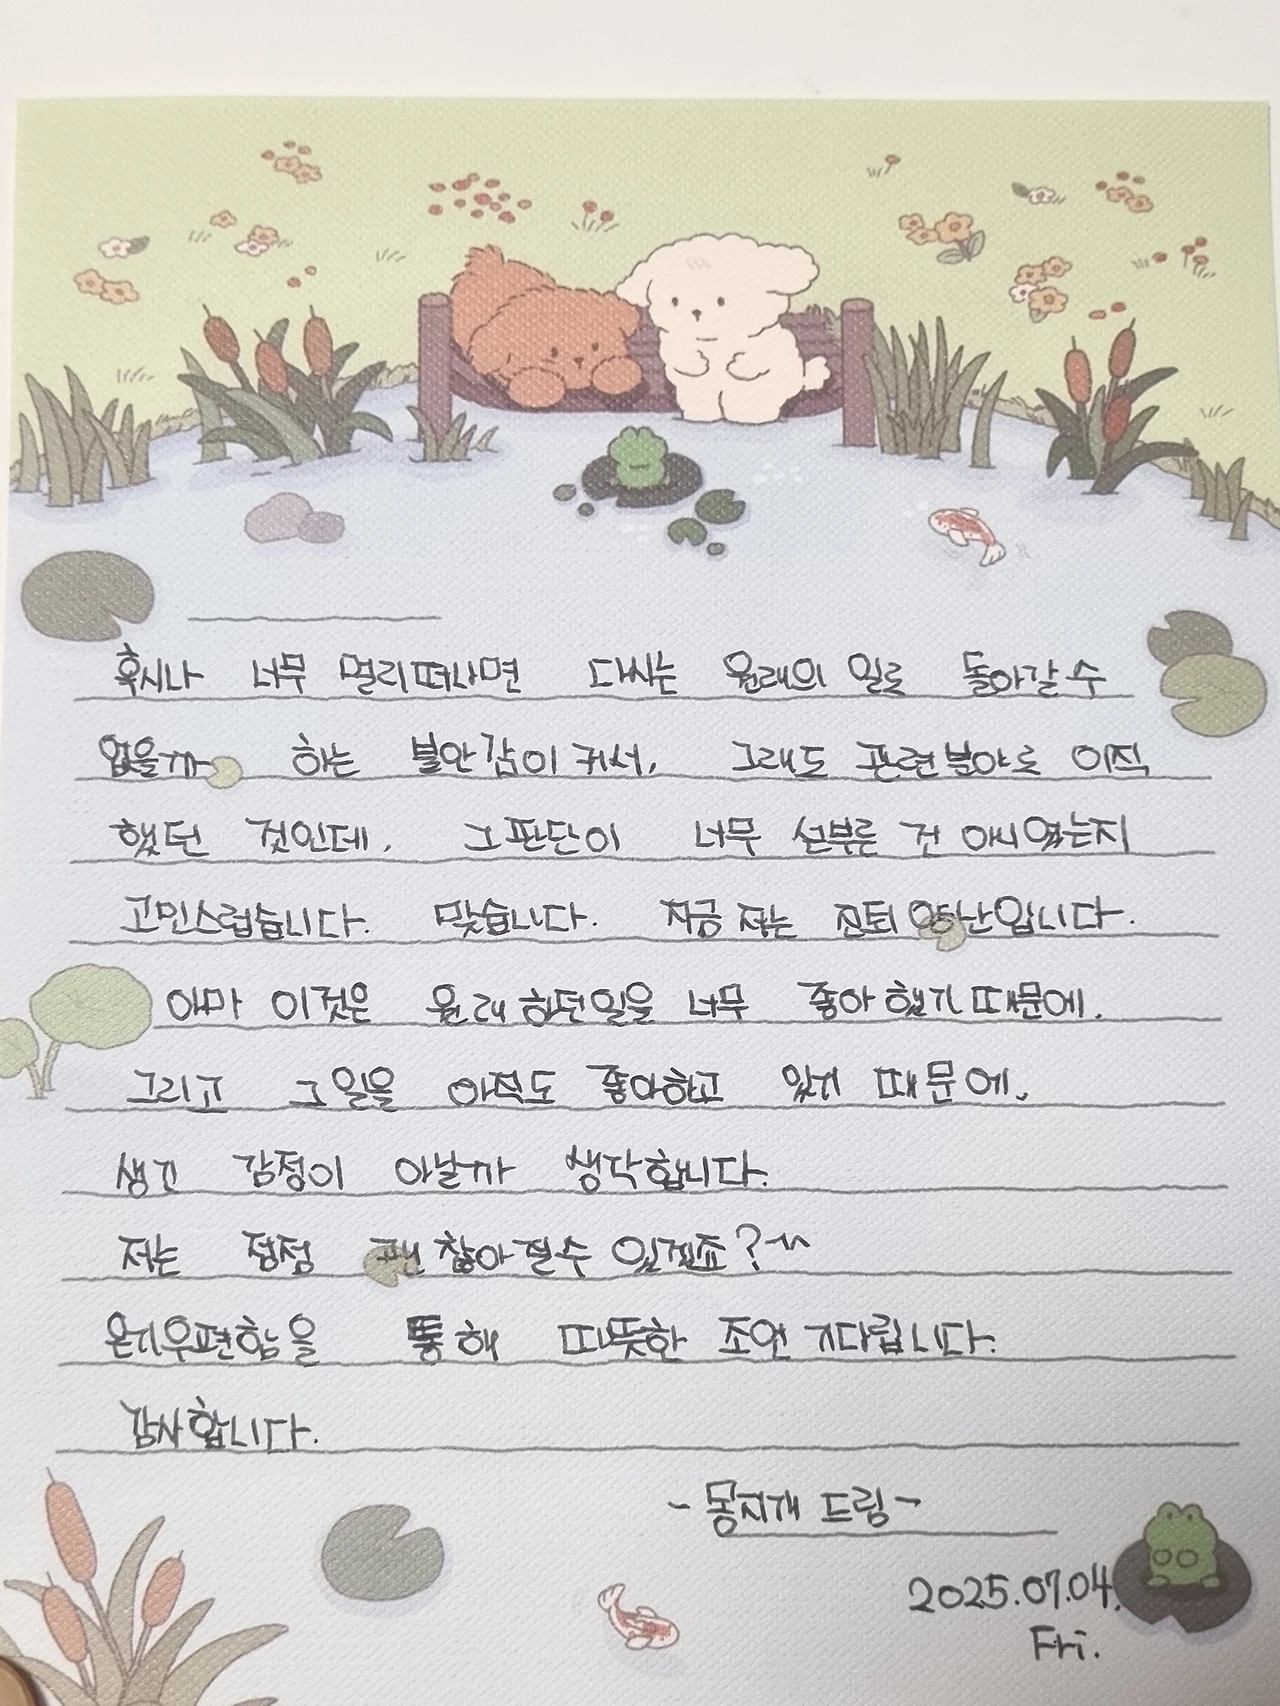 혹시나 너무 멀리떠나면 다시는 원래의 일로 돌아갈 수
없을까 하는 불안감이 커서, 그래도 관련분야로 이직
했던 것인데, 그 판단이 너무 섣부른 건 아니였는지
고민스럽습니다. 맞습니다. 지금 저는 진퇴양난입니다.
아마 이것은 원래 하던일을 너무 좋아했기 때문에,
그리고 그 일을 아직도 좋아하고 있기 때문에,
생긴 감정이 아닐까 생각합니다.
저는 점점 괜찮아질 수 있겠죠?^^
온기우편함을 통해 따뜻한 조언 기다립니다.
감사합니다.
- 몽지개 드림 -
2025.07.04.
Fri.